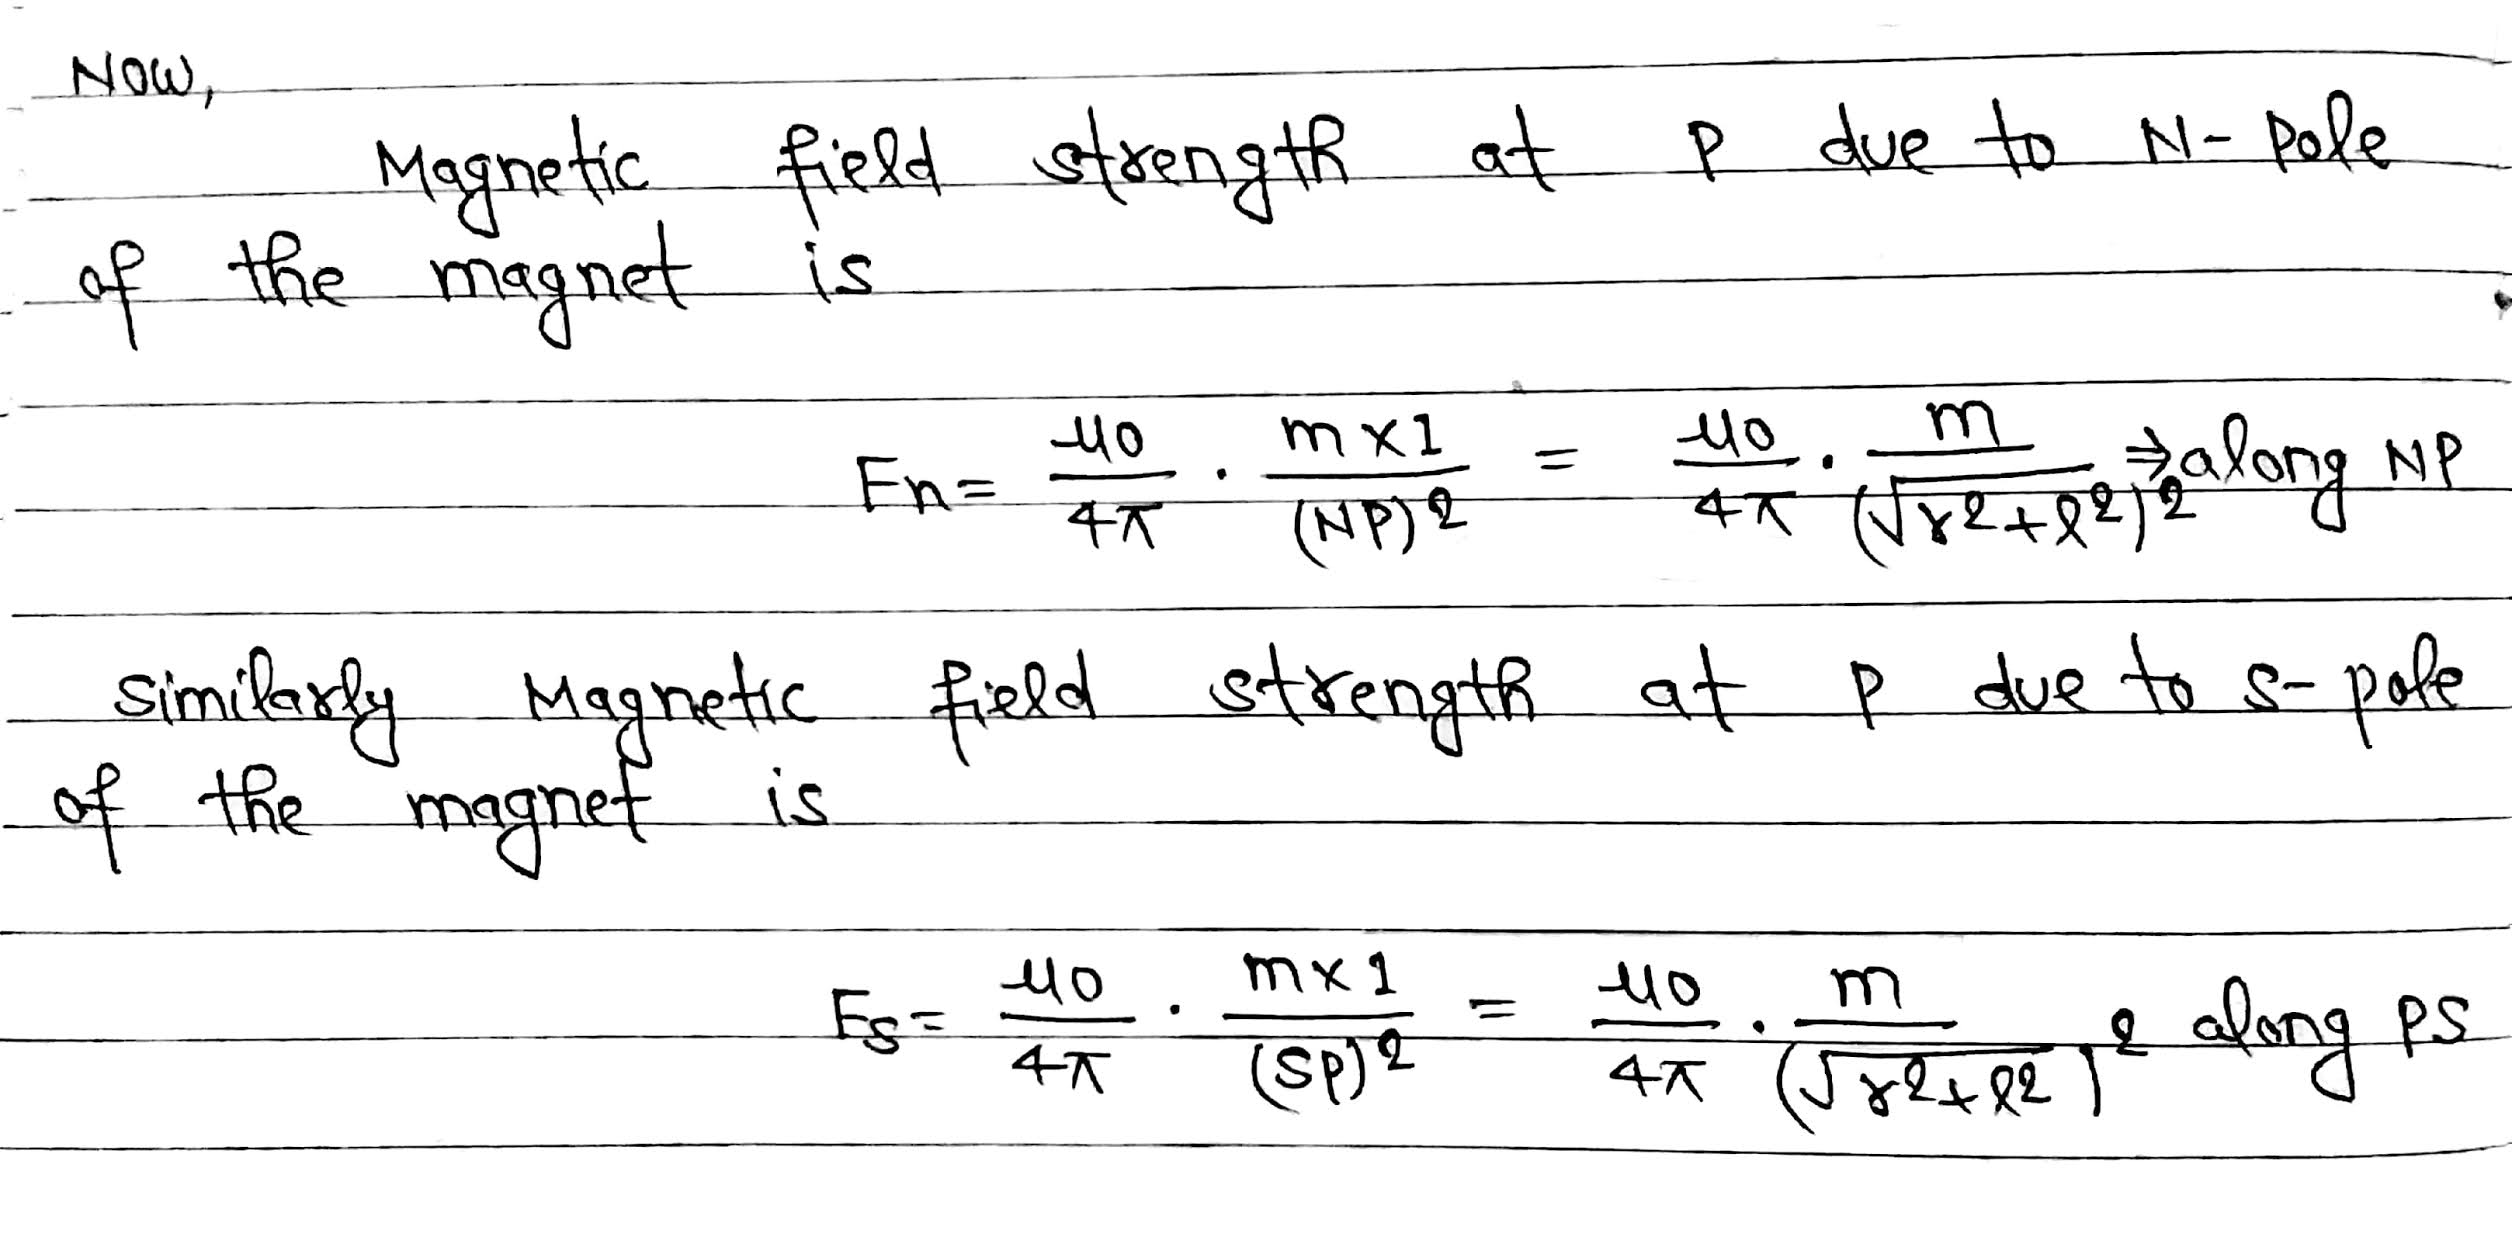 Now,
Magnetic field strength at P due to N-Pole
of the magnet is
Fn = μ0/4π · m×1/(NP)2 = μ0/4π · m/(√r2+l2)2 ⇒ along NP
Similarly Magnetic field strength at P due to S-pole
of the magnet is
Fs = μ0/4π · m×1/(SP)2 = μ0/4π · m/(√r2+l2)2 along PS